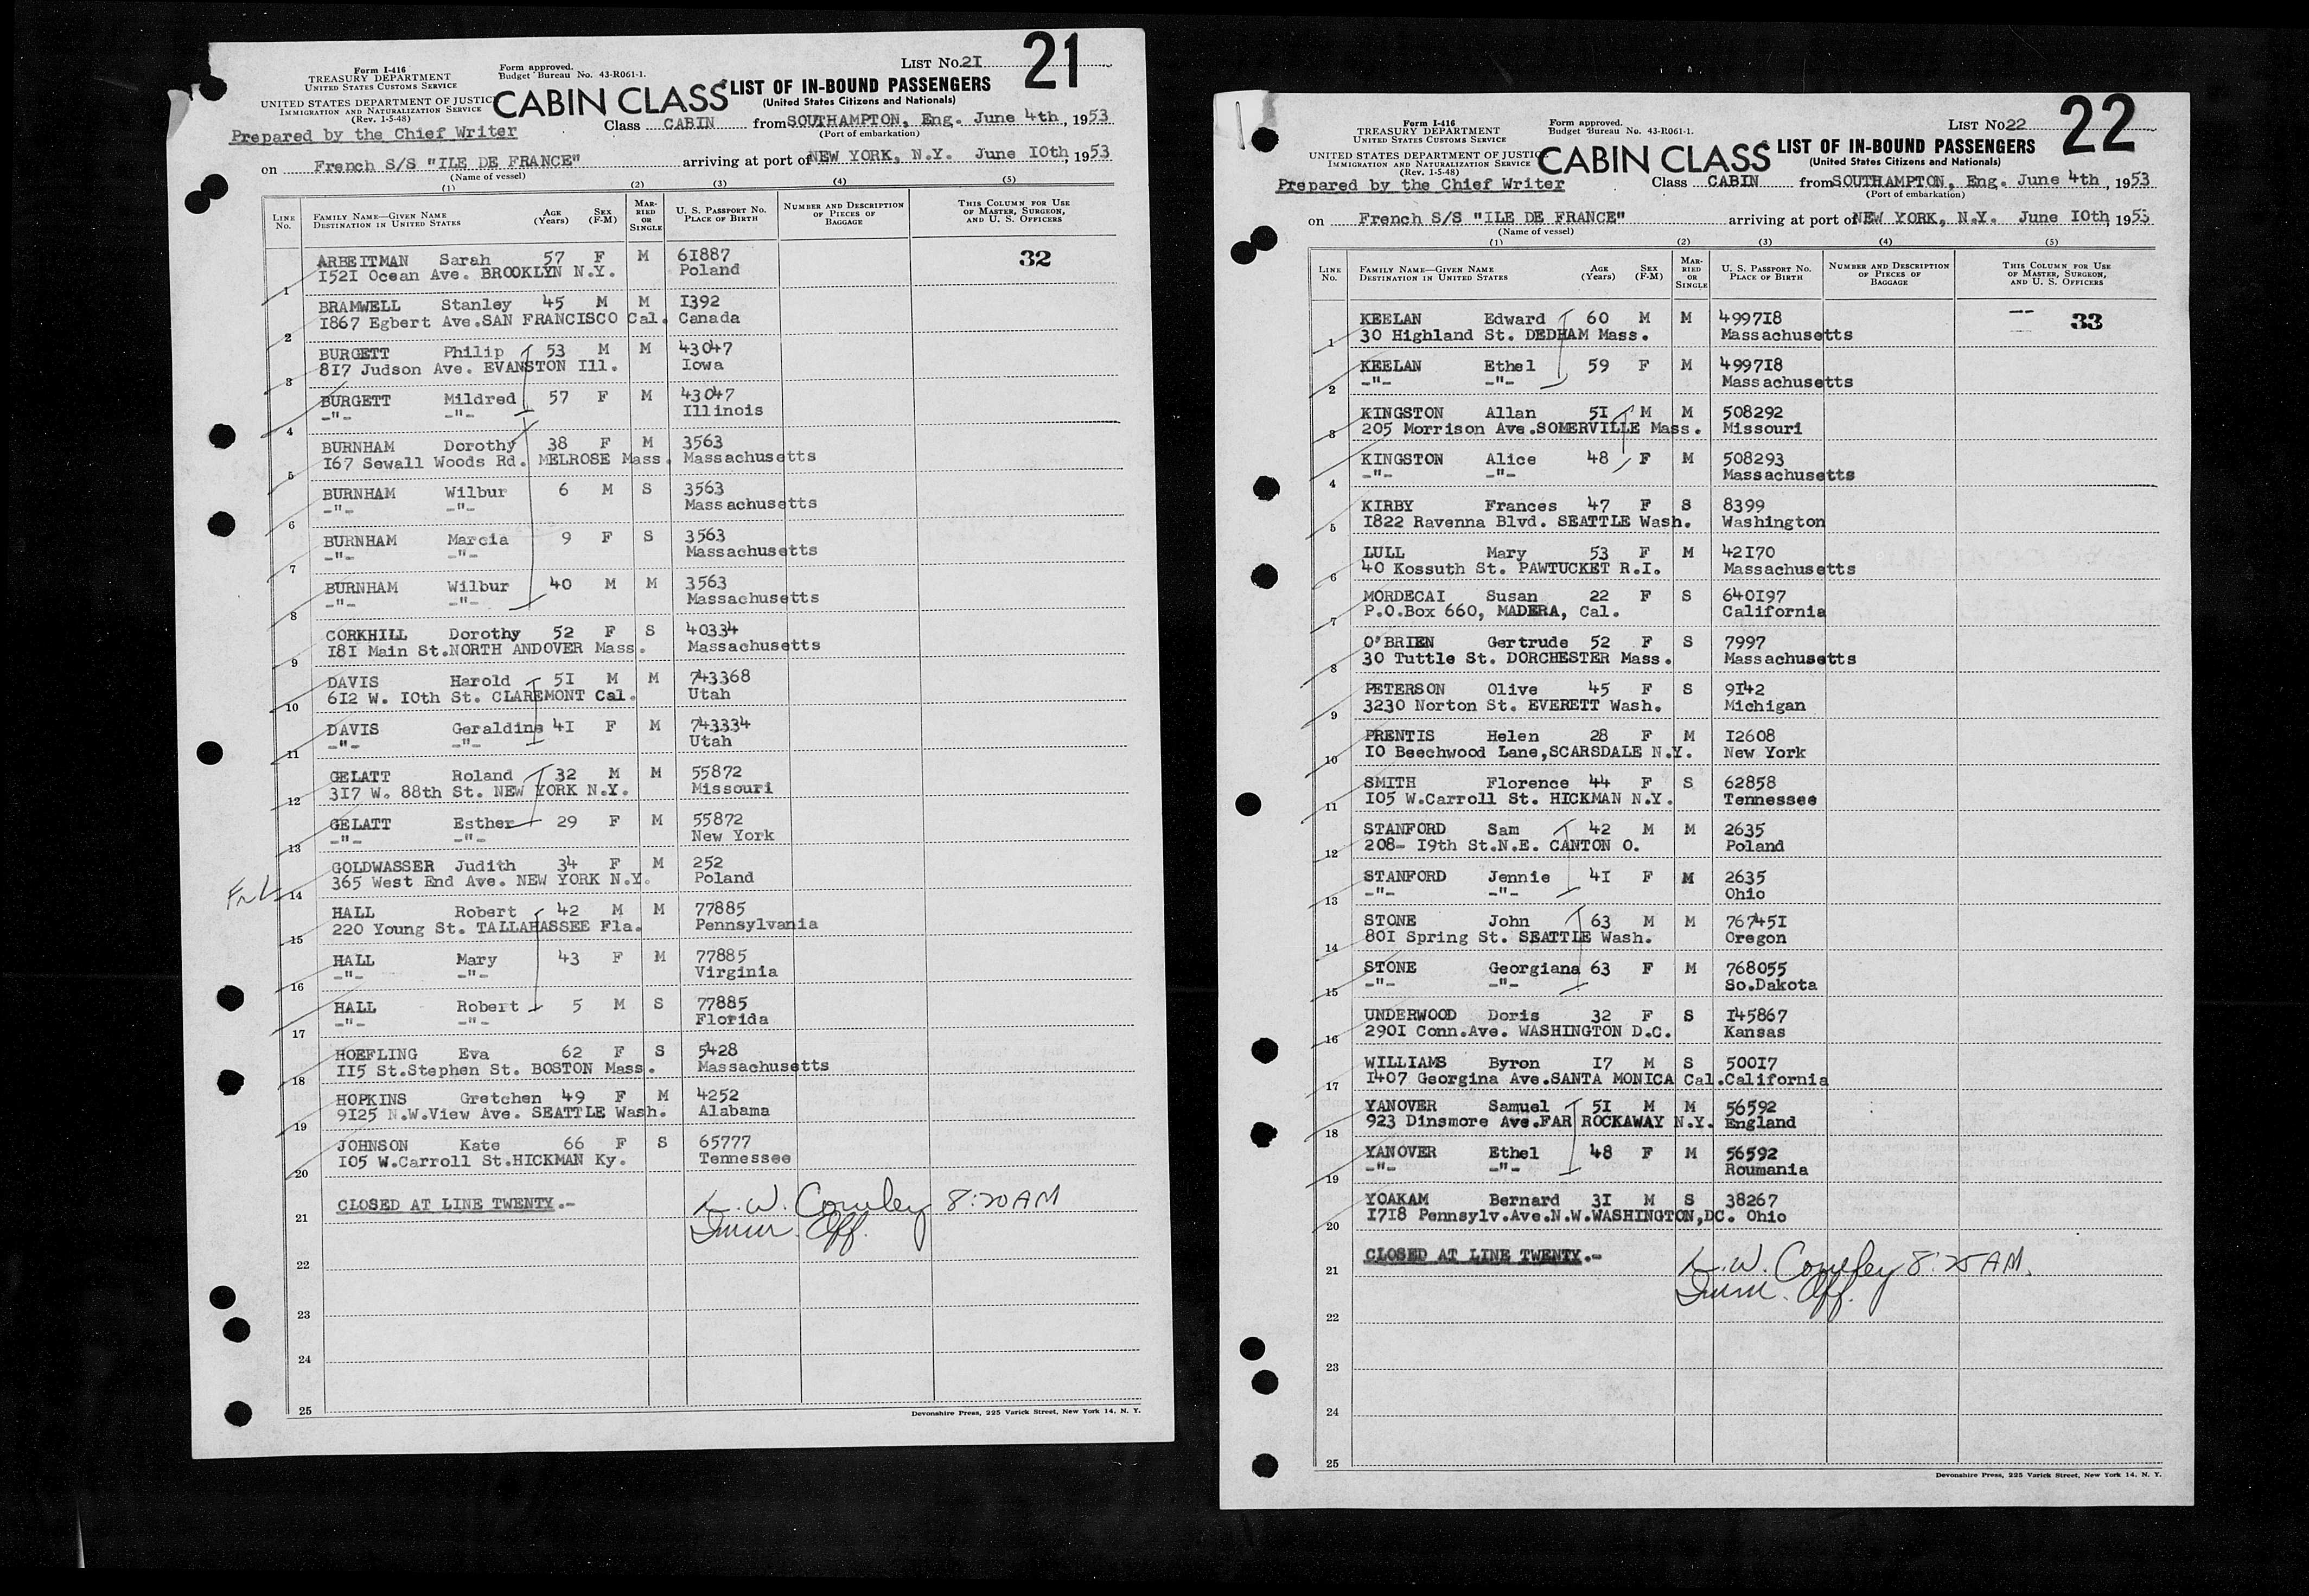 Form I-416
TREASURY DEPARTMENT
UNITED STATES CUSTOMS SERVICE
UNITED STATES DEPARTMENT OF JUSTICE
IMMIGRATION AND NATURALIZATION SERVICE
(Rev. 1-5-48)
Form approved.
Budget Bureau No. 43-R061-1.
LIST No. 21
21
CABIN CLASS
LIST OF IN-BOUND PASSENGERS
(United States Citizens and Nationals)
Prepared by the Chief Writer
Class CABIN from SOUTHAMPTON, Eng. June 4th, 1953
(Port of embarkation)
on French S/S "ILE DE FRANCE" arriving at port of NEW YORK, N.Y. June 10th 1953
(Name of vessel)
(1) (2) (3) (4) (5)
LINE No. FAMILY NAME—GIVEN NAME DESTINATION IN UNITED STATES AGE (Years) SEX (F-M) MARRIED OR SINGLE U. S. PASSPORT No. PLACE OF BIRTH NUMBER AND DESCRIPTION OF PIECES OF BAGGAGE THIS COLUMN FOR USE OF MASTER, SURGEON, AND U. S. OFFICERS
ARBEITMAN Sarah 57 F M 61887 32
1 1521 Ocean Ave. BROOKLYN N.Y. Poland
BRAMWELL Stanley 45 M M 1392
2 1867 Egbert Ave.SAN FRANCISCO Cal. Canada
BURGETT Philip 53 M M 43047
3 817 Judson Ave. EVANSTON Ill. Iowa
BURGETT Mildred 57 F M 43047
4 -"- -"- Illinois
BURNHAM Dorothy 38 F M 3563
5 167 Sewall Woods Rd. MELROSE Mass. Massachusetts
BURNHAM Wilbur 6 M S 3563
6 -"- -"- Massachusetts
BURNHAM Marcia 9 F S 3563
7 -"- -"- Massachusetts
BURNHAM Wilbur 40 M M 3563
8 -"- -"- Massachusetts
CORKHILL Dorothy 52 F S 40334
9 181 Main St.NORTH ANDOVER Mass. Massachusetts
DAVIS Harold 51 M M 743368
10 612 W. 10th St. CLAREMONT Cal. Utah
DAVIS Geraldine 41 F M 743334
11 -"- -"- Utah
GELATT Roland 32 M M 55872
12 317 W. 88th St. NEW YORK N.Y. Missouri
GELATT Esther 29 F M 55872
13 -"- -"- New York
GOLDWASSER Judith 34 F M 252
14 365 West End Ave. NEW YORK N.Y. Poland
HALL Robert 42 M M 77885
15 220 Young St. TALLAHASSEE Fla. Pennsylvania
HALL Mary 43 F M 77885
16 -"- -"- Virginia
HALL Robert 5 M S 77885
17 -"- -"- Florida
HOEFLING Eva 62 F S 5428
18 115 St.Stephen St. BOSTON Mass. Massachusetts
HOPKINS Gretchen 49 F M 4252
19 9125 N.W.View Ave. SEATTLE Wash. Alabama
JOHNSON Kate 66 F S 65777
20 105 W.Carroll St.HICKMAN Ky. Tennessee
21 CLOSED AT LINE TWENTY.- 8:20 AM
Imm. Off.
22
23
24
25
Devonshire Press, 225 Varick Street, New York 14, N. Y.
Form I-416
TREASURY DEPARTMENT
UNITED STATES CUSTOMS SERVICE
UNITED STATES DEPARTMENT OF JUSTICE
IMMIGRATION AND NATURALIZATION SERVICE
(Rev. 1-5-48)
Form approved.
Budget Bureau No. 43-R061-1.
LIST No. 22
22
CABIN CLASS
LIST OF IN-BOUND PASSENGERS
(United States Citizens and Nationals)
Prepared by the Chief Writer
Class CABIN from SOUTHAMPTON, Eng. June 4th, 1953
(Port of embarkation)
on French S/S "ILE DE FRANCE" arriving at port of NEW YORK, N.Y. June 10th, 1953
(Name of vessel)
(1) (2) (3) (4) (5)
LINE No. FAMILY NAME—GIVEN NAME DESTINATION IN UNITED STATES AGE (Years) SEX (F-M) MARRIED OR SINGLE U. S. PASSPORT No. PLACE OF BIRTH NUMBER AND DESCRIPTION OF PIECES OF BAGGAGE THIS COLUMN FOR USE OF MASTER, SURGEON, AND U. S. OFFICERS
KEELAN Edward 60 M M 499718 33
1 30 Highland St. DEDHAM Mass. Massachusetts
KEELAN Ethel 59 F M 499718
2 -"- -"- Massachusetts
KINGSTON Allan 51 M M 508292
3 205 Morrison Ave.SOMERVILLE Mass. Missouri
KINGSTON Alice 48 F M 508293
4 -"- -"- Massachusetts
KIRBY Frances 47 F S 8399
5 1822 Ravenna Blvd. SEATTLE Wash. Washington
LULL Mary 53 F M 42170
6 40 Kossuth St. PAWTUCKET R.I. Massachusetts
MORDECAI Susan 22 F S 640197
7 P.O.Box 660, MADERA, Cal. California
O'BRIEN Gertrude 52 F S 7997
8 30 Tuttle St. DORCHESTER Mass. Massachusetts
PETERSON Olive 45 F S 9142
9 3230 Norton St. EVERETT Wash. Michigan
PRENTIS Helen 28 F M 12608
10 10 Beechwood Lane,SCARSDALE N.Y. New York
SMITH Florence 44 F S 62858
11 105 W.Carroll St. HICKMAN N.Y. Tennessee
STANFORD Sam 42 M M 2635
12 208- 19th St.N.E. CANTON O. Poland
STANFORD Jennie 41 F M 2635
13 -"- -"- Ohio
STONE John 63 M M 767451
14 801 Spring St. SEATTLE Wash. Oregon
STONE Georgiana 63 F M 768055
15 -"- -"- So.Dakota
UNDERWOOD Doris 32 F S 145867
16 2901 Conn.Ave. WASHINGTON D.C. Kansas
WILLIAMS Byron 17 M S 50017
17 1407 Georgina Ave.SANTA MONICA Cal.California
YANOVER Samuel 51 M M 56592
18 923 Dinsmore Ave.FAR ROCKAWAY N.Y. England
YANOVER Ethel 48 F M 56592
19 -"- -"- Roumania
YOAKAM Bernard 31 M S 38267
20 1718 Pennsylv.Ave.N.W.WASHINGTON,DC. Ohio
21 CLOSED AT LINE TWENTY.- 8:25 AM.
Imm. Off.
22
23
24
25
Devonshire Press, 225 Varick Street, New York 14, N. Y.